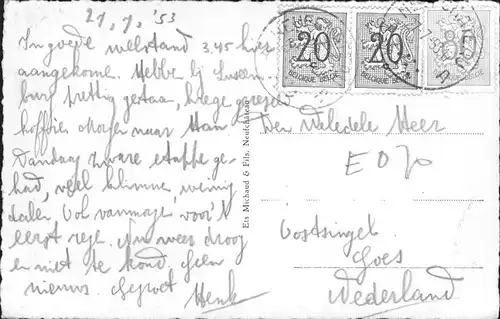 21, 7, '53
In goede welstand 3.45 hier
aangekome. Hebbe bij Luxem-
burg prettig gestaan,
koffie. Morgen naar Han
Vandaag zware etappe ge-
had, veel klimme, weinig
dalen.
eerst rege. Nu weer droog
en niet te koud. Geen
nieuws. Gegroet Henk
20
20
BELGIE-BELGIQUE
Ets Michaud & Fils, Neufchâteau
Den Weledele Heer
Oostsingel
Goes
Nederland